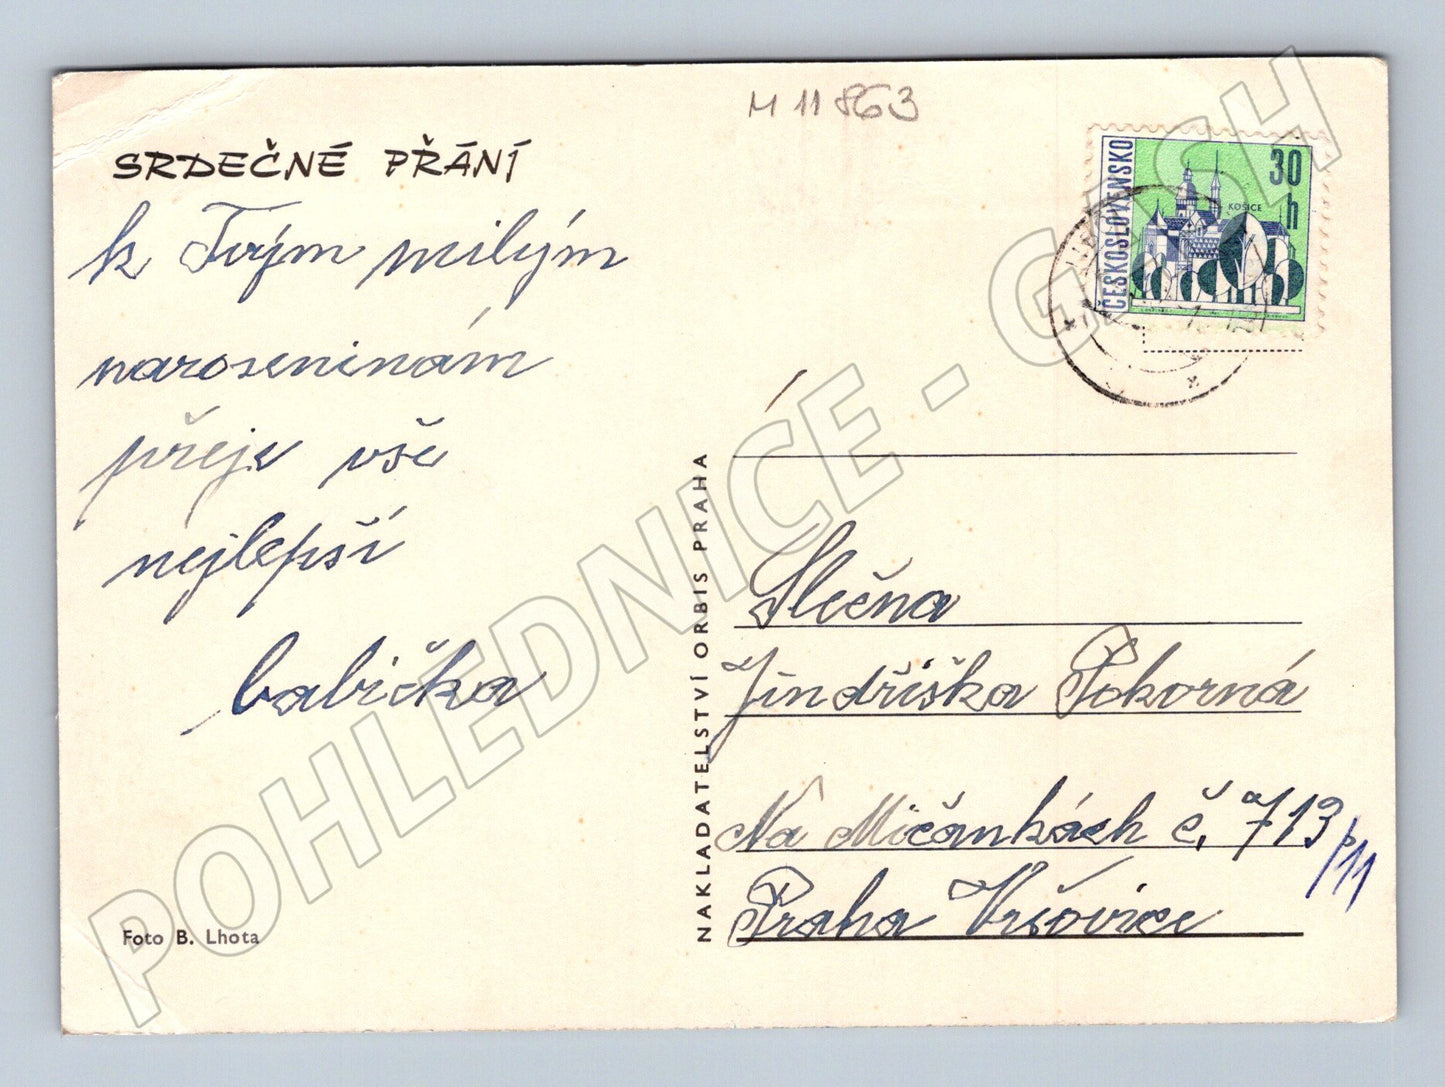 M 11 863
SRDEČNÉ PŘÁNÍ
k Tvým milým
naroseninám
přeje vše
nejlepší
babička
Foto B. Lhota
NAKLADATELSTVÍ ORBIS PRAHA
ČESKOSLOVENSKO
30 h
KOŠICE
Slečna
Jindřiška Pokorná
Na Mičánkách č. 713
/11
Praha Vršovice
POHLEDNICE - GASH